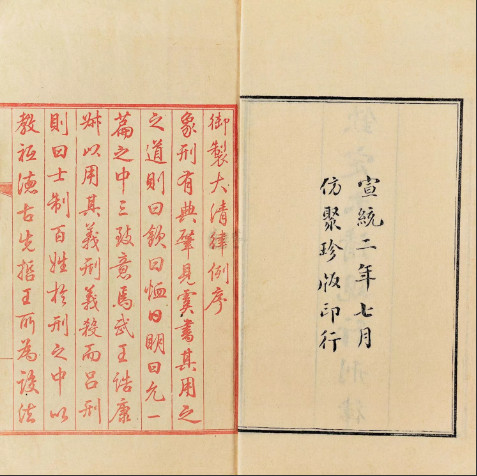 宣統二年七月
仿聚珍版印行
御製大清律例序
象刑有典肇見虞書其用之
之道則曰欽曰恤曰明曰允一
篇之中三致意焉武王誥康
叔以用其義刑義殺而呂刑
則曰士制百姓於刑之中以
教祗德古先哲王所為設法